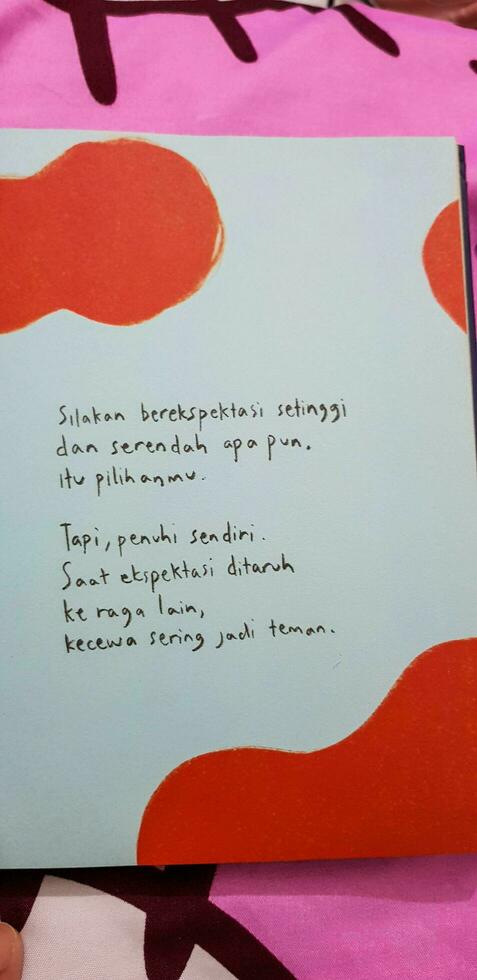 Silakan berekspektasi setinggi
dan serendah apa pun.
Itu pilihanmu.
Tapi, penuhi sendiri.
Saat ekspektasi ditaruh
ke raga lain,
kecewa sering jadi teman.